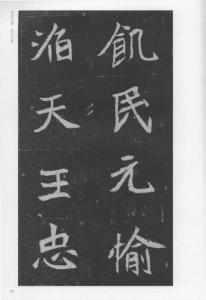 飢民元愉
天王忠